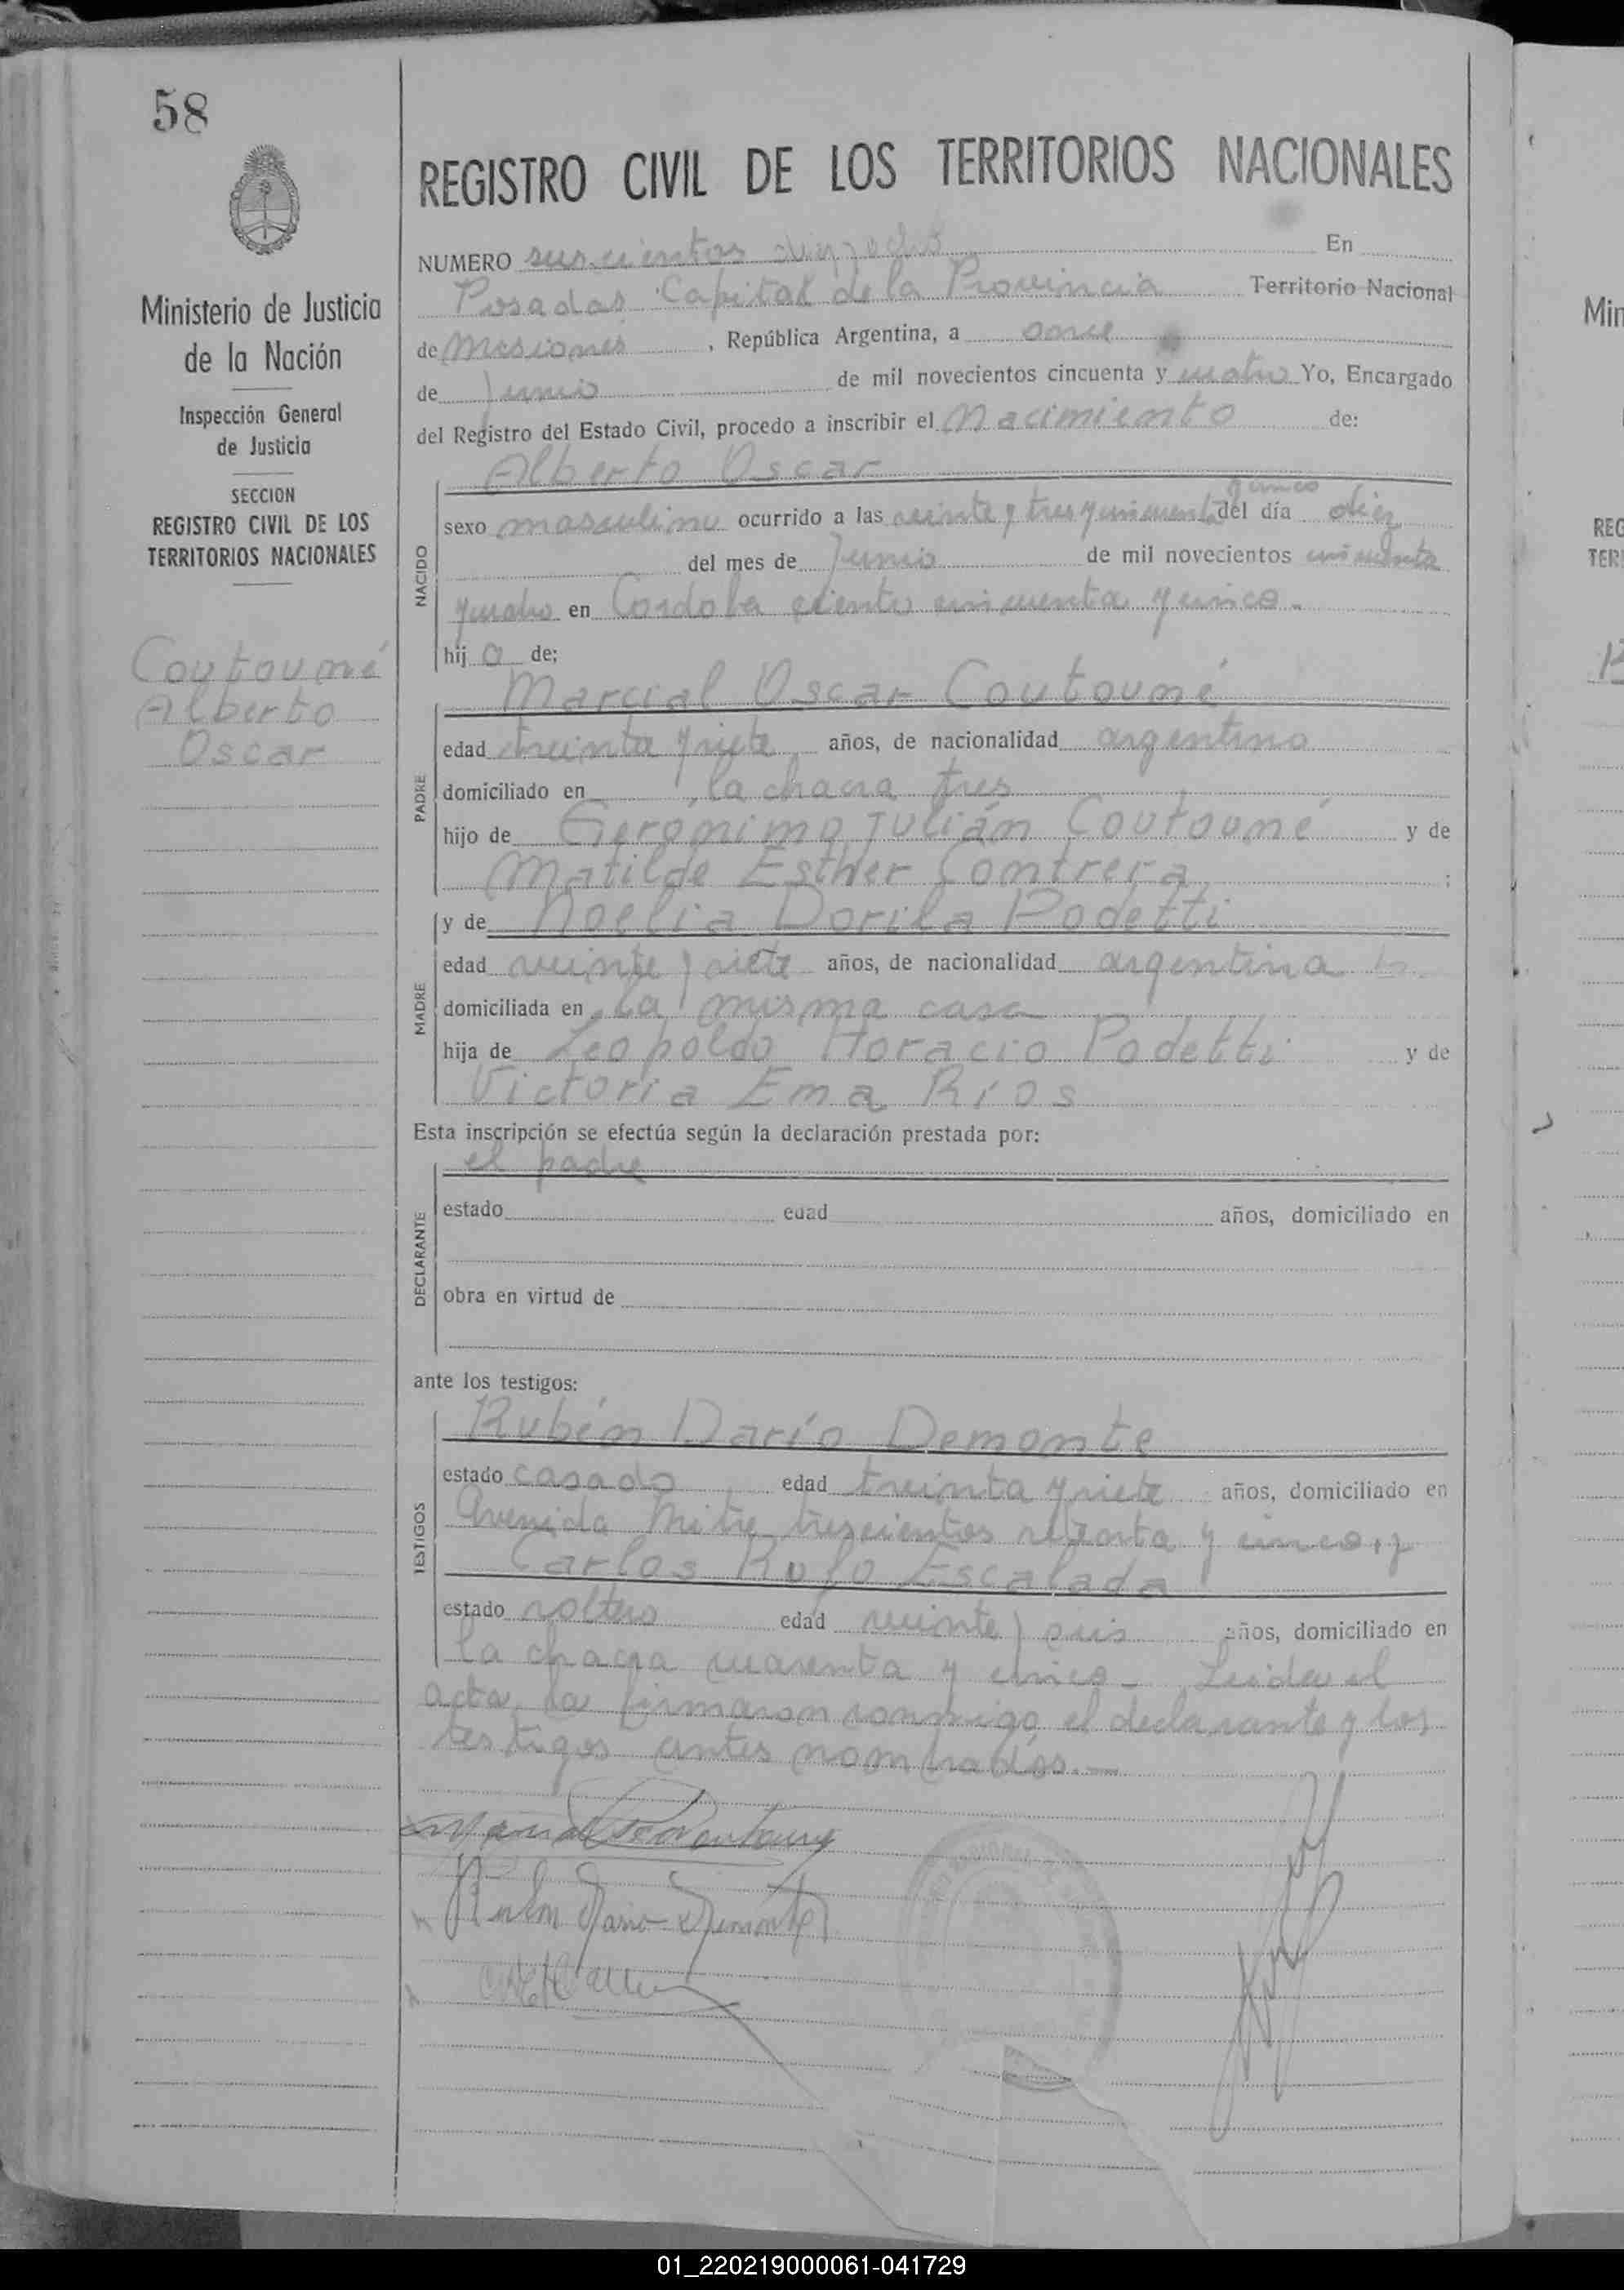 58
REGISTRO CIVIL DE LOS TERRITORIOS NACIONALES
Ministerio de Justicia
de la Nación
Inspección General
de Justicia
SECCION
REGISTRO CIVIL DE LOS
TERRITORIOS NACIONALES
Coutouné
Alberto
Oscar
NUMERO En
Posadas Capital de la Provincia Territorio Nacional
de Misiones, República Argentina, a once
de Junio de mil novecientos cincuenta y cuatro Yo, Encargado
del Registro del Estado Civil, procedo a inscribir el Nacimiento de:
Alberto Oscar
NACIDO
y cinco
sexo masculino ocurrido a las veinte y tres y cincuenta del día diez
del mes de Junio de mil novecientos cincuenta
y cuatro en Cordoba ciento cincuenta y cinco.
hijo de;
PADRE
Marcial Oscar Coutouné
edad treinta y siete años, de nacionalidad argentino
domiciliado en la chacra tres
hijo de Geronimo Julián Coutouné y de
Matilde Esther Contrera ;
MADRE
y de Noelia Dorila Podetti
edad veinte y siete años, de nacionalidad argentina
domiciliada en la misma casa
hija de Leopoldo Horacio Podetti y de
Victoria Ema Ríos
Esta inscripción se efectúa según la declaración prestada por:
DECLARANTE
el padre
estado edad años, domiciliado en
obra en virtud de
ante los testigos:
TESTIGOS
Rubén Darío Demonte
estado casado edad treinta y siete años, domiciliado en
Avenida Mitre trescientos setenta y cinco, y
Carlos Rufo Escalada
estado soltero edad veinte y seis años, domiciliado en
la chacra cuarenta y cinco - Leida el
acta, la firmaron conmigo, el declarante y los
testigos antes nombrados.—
Ruben Dario Demonte
Min
REG
TER
01_220219000061-041729